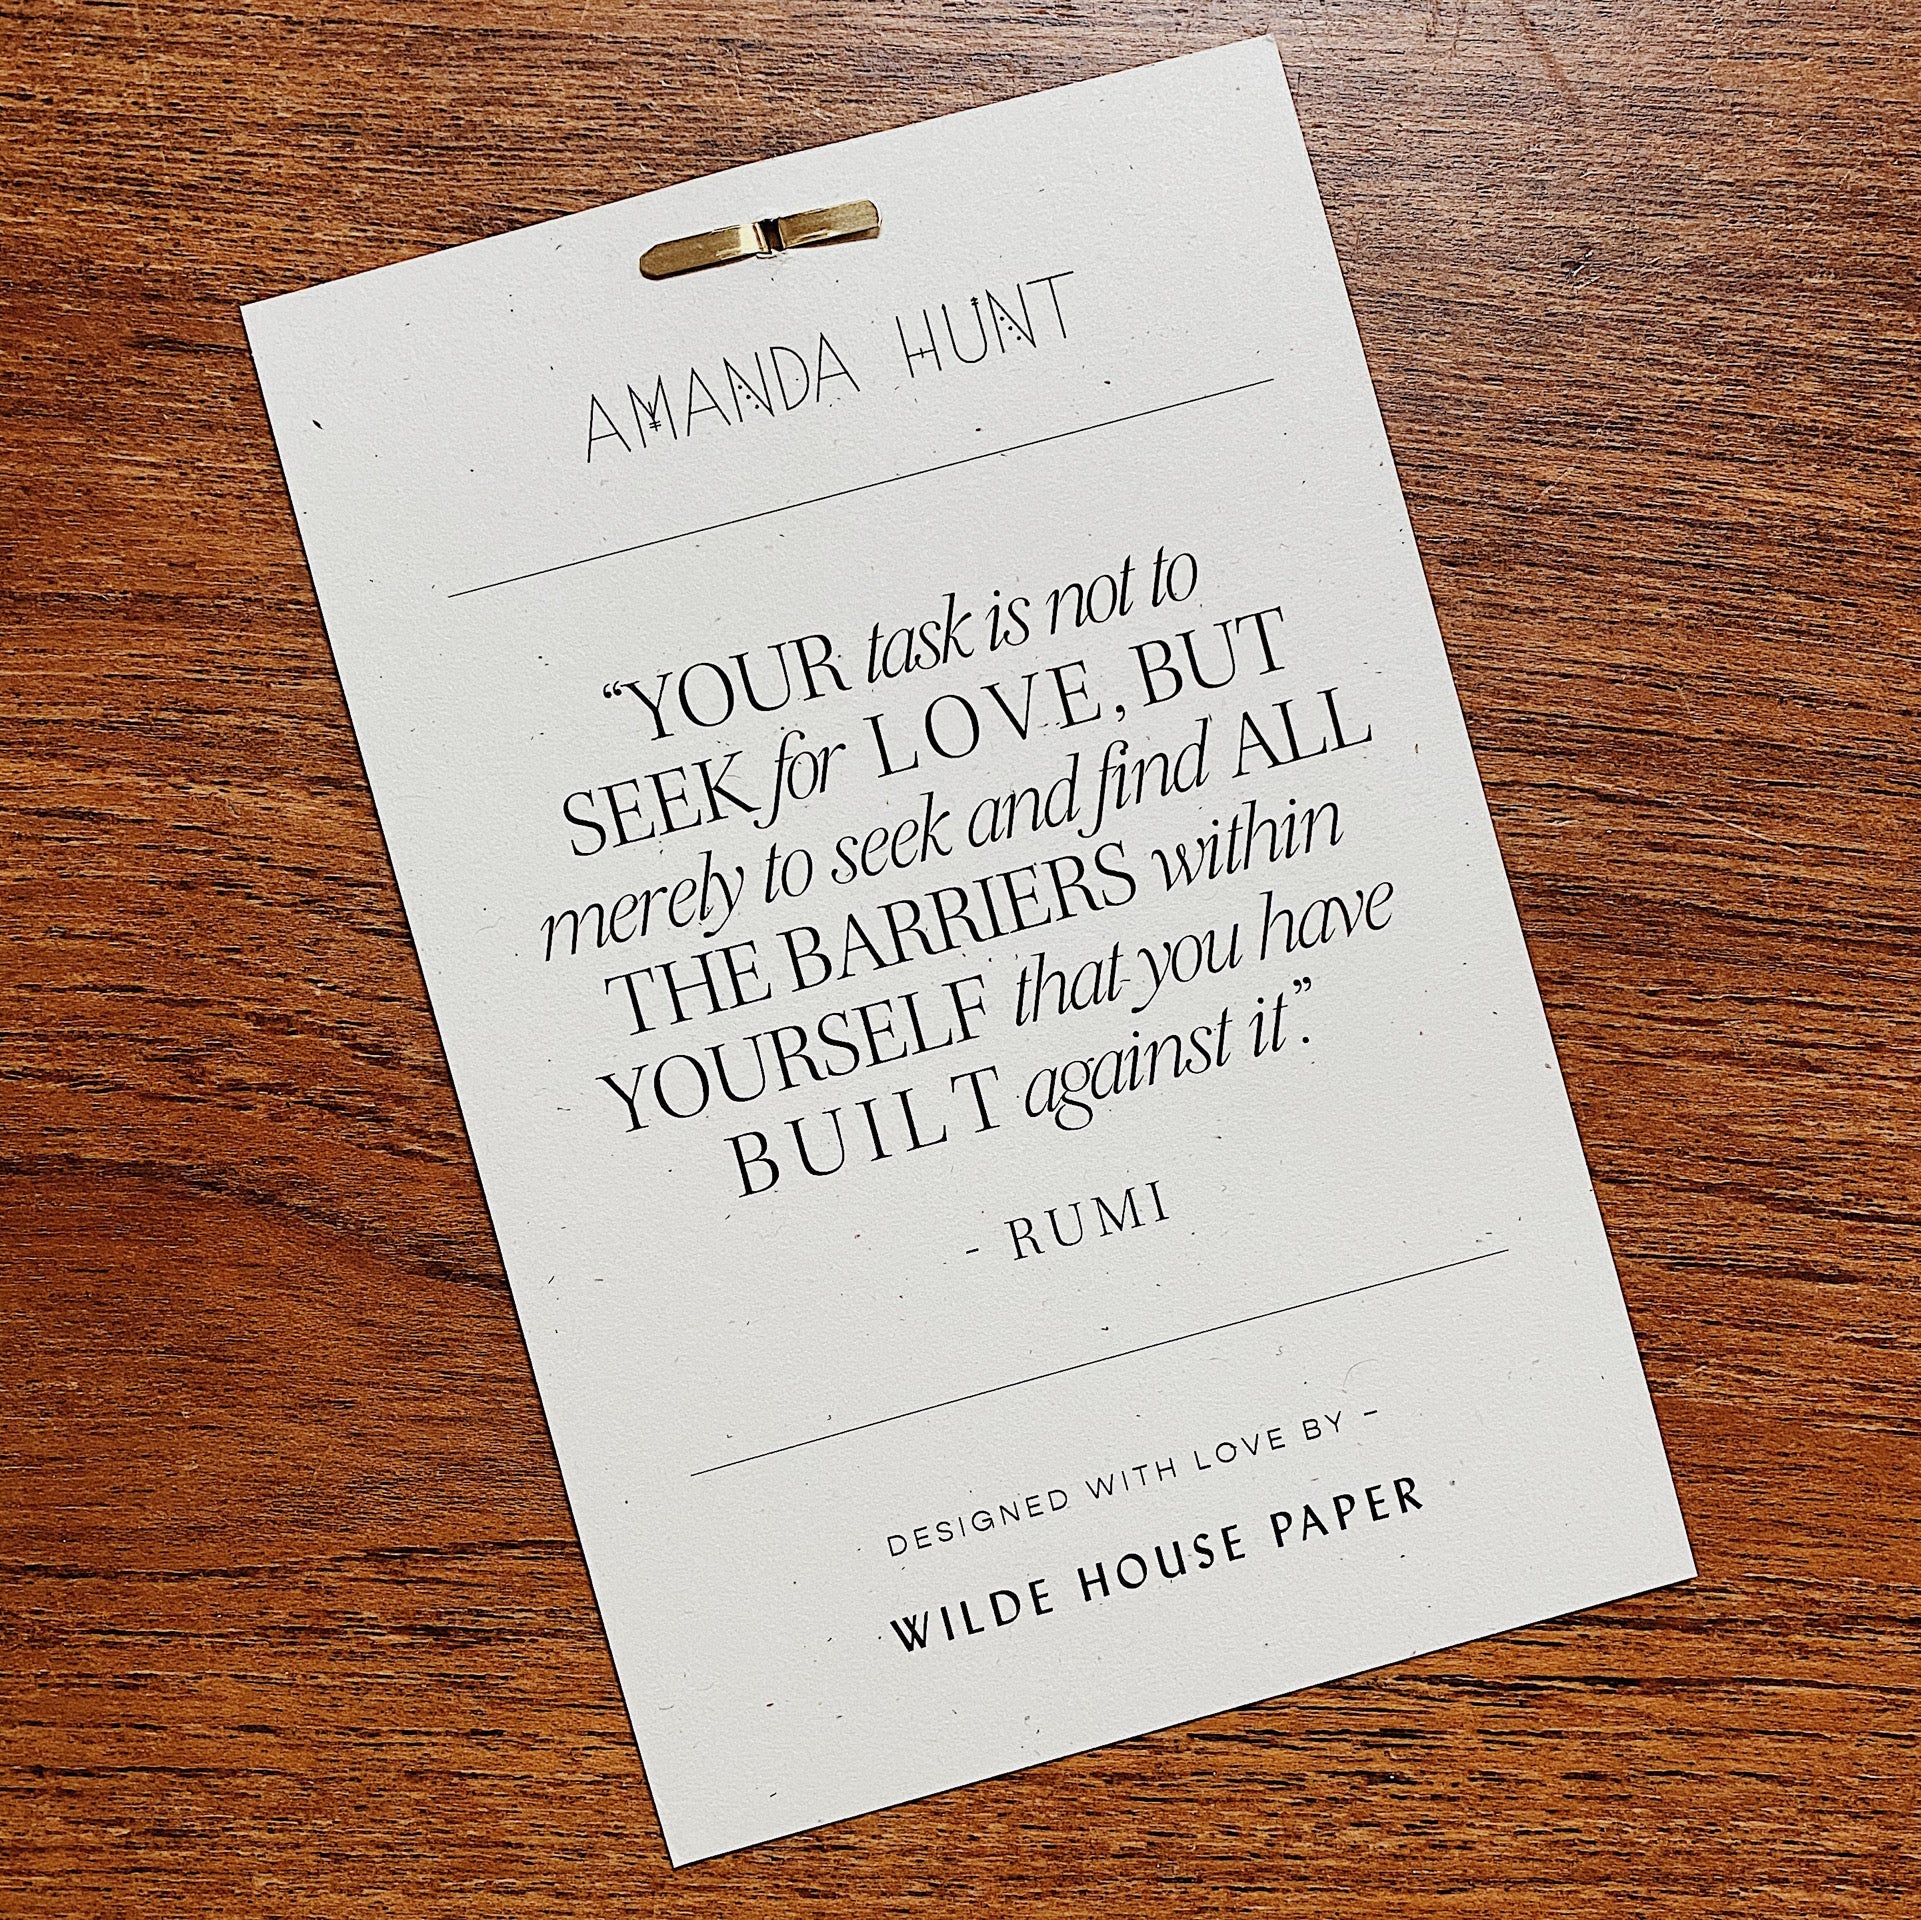 AMANDA HUNT
“YOUR task is not to
SEEK for LOVE, BUT
merely to seek and find ALL
THE BARRIERS within
YOURSELF that you have
BUILT against it”.
- RUMI
DESIGNED WITH LOVE BY -
WILDE HOUSE PAPER